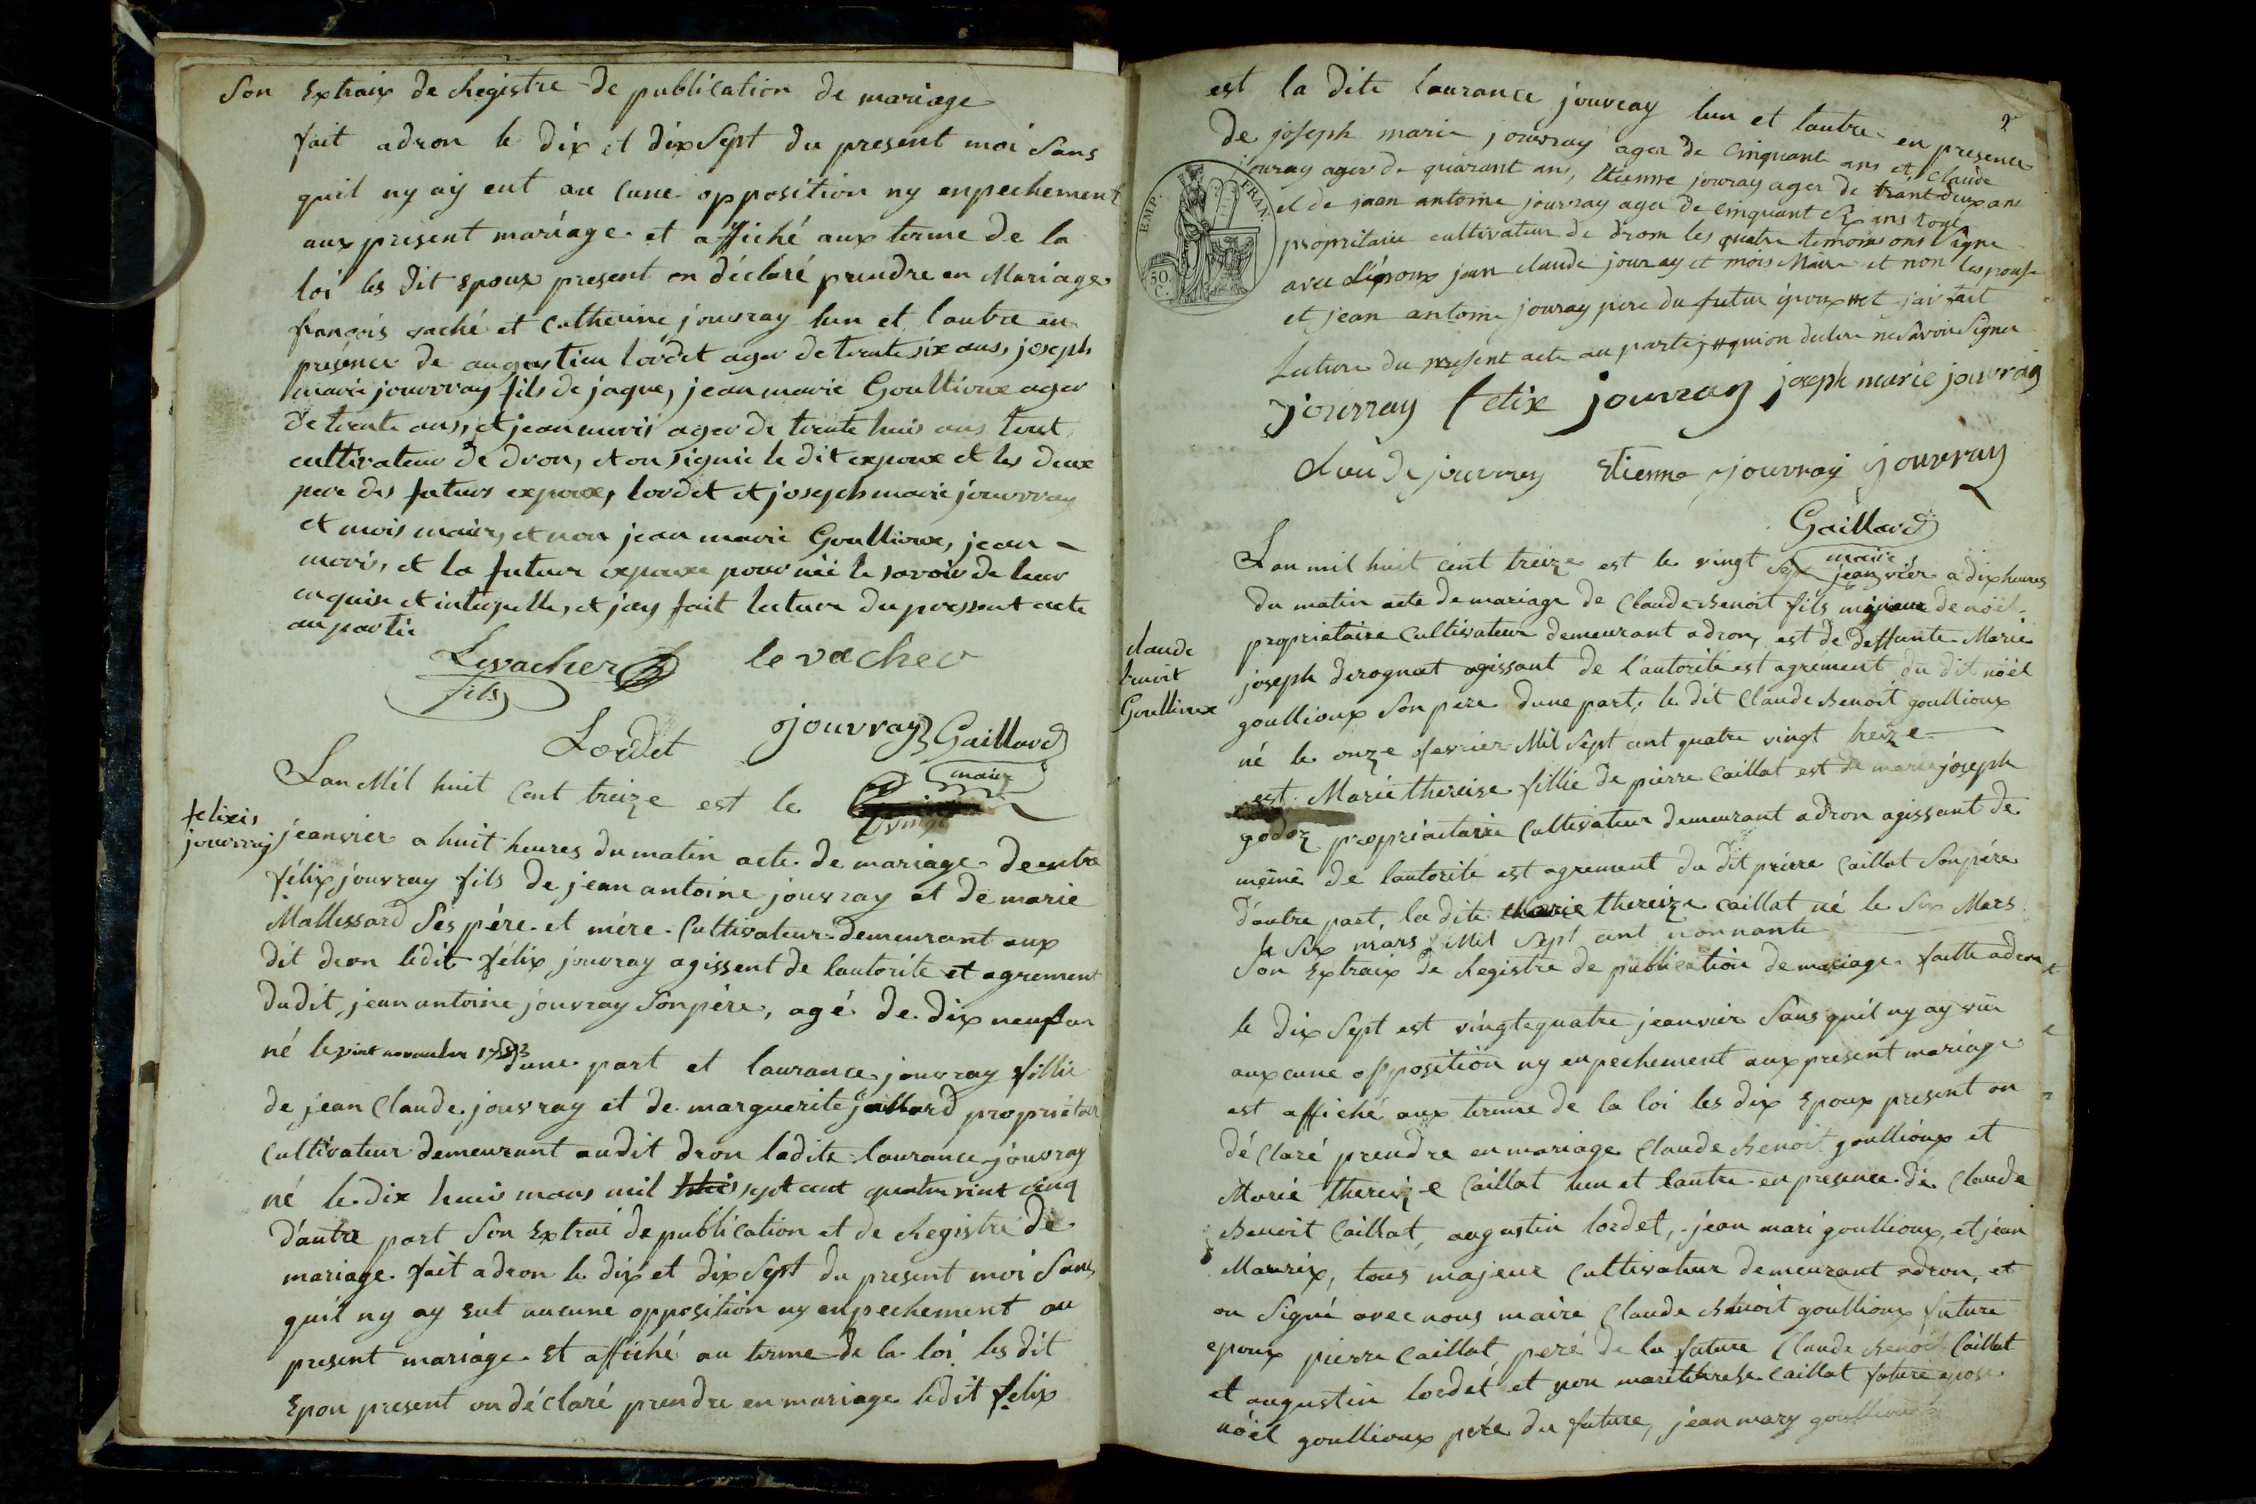 Son Extraix de Registre de publication de mariage
fait adron le dix et dix Sept du present moi Sans
quil ny aÿ eut au cune opposition ny enpechement
aux present mariage et affiché aux terme de la
loi les dit Epoux present on déclaré prendre en Mariage
françois vaché et Catherine jouvray lun et lautre en
présence de augustien lordet ager de trente six ans, joseph
marie jouvrray fils de jaque, jean marie Goullioux ager
de trente ans, et jean moris ager de trente huis ans tout
cultivateur de dron, et on signié le dit expoux et les deux
pere des futurs expoux, lordet et joseph marie jouvrray
et mois maire, et non jean marie Goullioux, jean
moris, et la future expouxe pour née le savoir de leur
enquis et interpelle, et jay fait lecture du present acte
au partie
Levacher
fils
le vacher
Lordet
jouvray
Gaillard
maire
Lan Mil huit Cent treize est le vingt
felixis
jouvray
jeanvier a huit heures du matin acte de mariage de entre
félix jouvray fils de jean antoine jouvray et de marie
Mallessard Ses pére et mére Cultivateur demeurant aux
dit dron ledit félix jouvray agissent de lautorite et agrement
dudit, jean antoine jouvray Son pére, agé de dix neuf an
né le vint novembre 1793 dune part et laurance jouvray fillie
de jean Claude jouvray et de marguerite jallard propriétair
Cultivateur demeurant audit dron ladite laurance jouvray
né le dix huis mars mil sept cent quatre vint cinq
d'autre part Son Extrai de publication et de Registre de
mariage fait adron le dix et dix Sept du present moi Sans
quil ny ay Eut aucune opposition ny enpechement au
present mariage Et affiché au terme de la loi les dit
Epou present on déclaré prendre en mariage ledit felix
2
est la dite laurance jouvray lun et lautre en presence
de joseph marie jouvray ager de Cinquant ans et Claude
jouvray ager de quarant an, Etienne jouvray ager de trant deux ans
et de jean antoine jouvray ager de Cinquant Six ans tout
EMP. FRAN.
50 C.
propritaire cultivateur de drom les quatre temoins ons Signe
avec Lépoux jean claude jouvray et mois Maire et non lespouse
et jean antoine jouvray pere du futur époux et jai fait
Lecture du present acte au partie quion declere ne Savoir Signer
jouvray felix jouvray joseph marie jouvray
claude jouvrey Etienne jouvray jouvray
Gaillard
maire
Lan mil huit cent treize est le vingt Sept jeanvier a dix heures
du matin acte de mariage de Claude Benoit fils majeur de noël
claude
benoit
Goullioux
propriataire Cultivateur demeurant adron, est de deffunte Marie
joseph derognat agissant de l'autorité est agrément du dit noël
goullioux Son pere dune part, le dit Claude Benoit goullioux
né le onze fevrier Mil Sept cent quatre vingt treize
est Marie thereise fillie de pierre Caillat est de marie joseph
godoz propriactaire Cultivateur demeurant adron agissant de
mëme de lautorité est agrement du dit piérre Caillat Son pére
d'autre part, la dite Marie thereize Caillat né le Six Mars
le Six mars Mil Sept cent nonnante
Son Extraix de Registre de publication de mariage faitte adron
le dix Sept est vingtequatre jeanvier Sans quil ny ay eüe
auxcune opposition ny enpechement aux present mariage
est affiché aux terme de la loi les dix Epoux present on
déclaré prendre en mariage Claude Benoit goullioux et
Marie thereize Caillat lun et lautre en presence de Claude
Benoit Caillat, augustin lordet, jean mari goullioux, et jean
Maurix, tous majeur Cultivateur demeurant adron, et
on Signé avec nous maire Claude Benoit goullioux future
epoux pierre Caillat peré de la future Claude Benoit Caillat
et augustin lordét et non marie therese Caillat future epose
nöel goullioux pere du future, jean mary goullioux